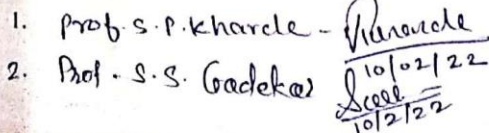 1. Prof. S. P. Kharde -
10/02/22
2. Prof. S. S. Gadekar
10/2/22